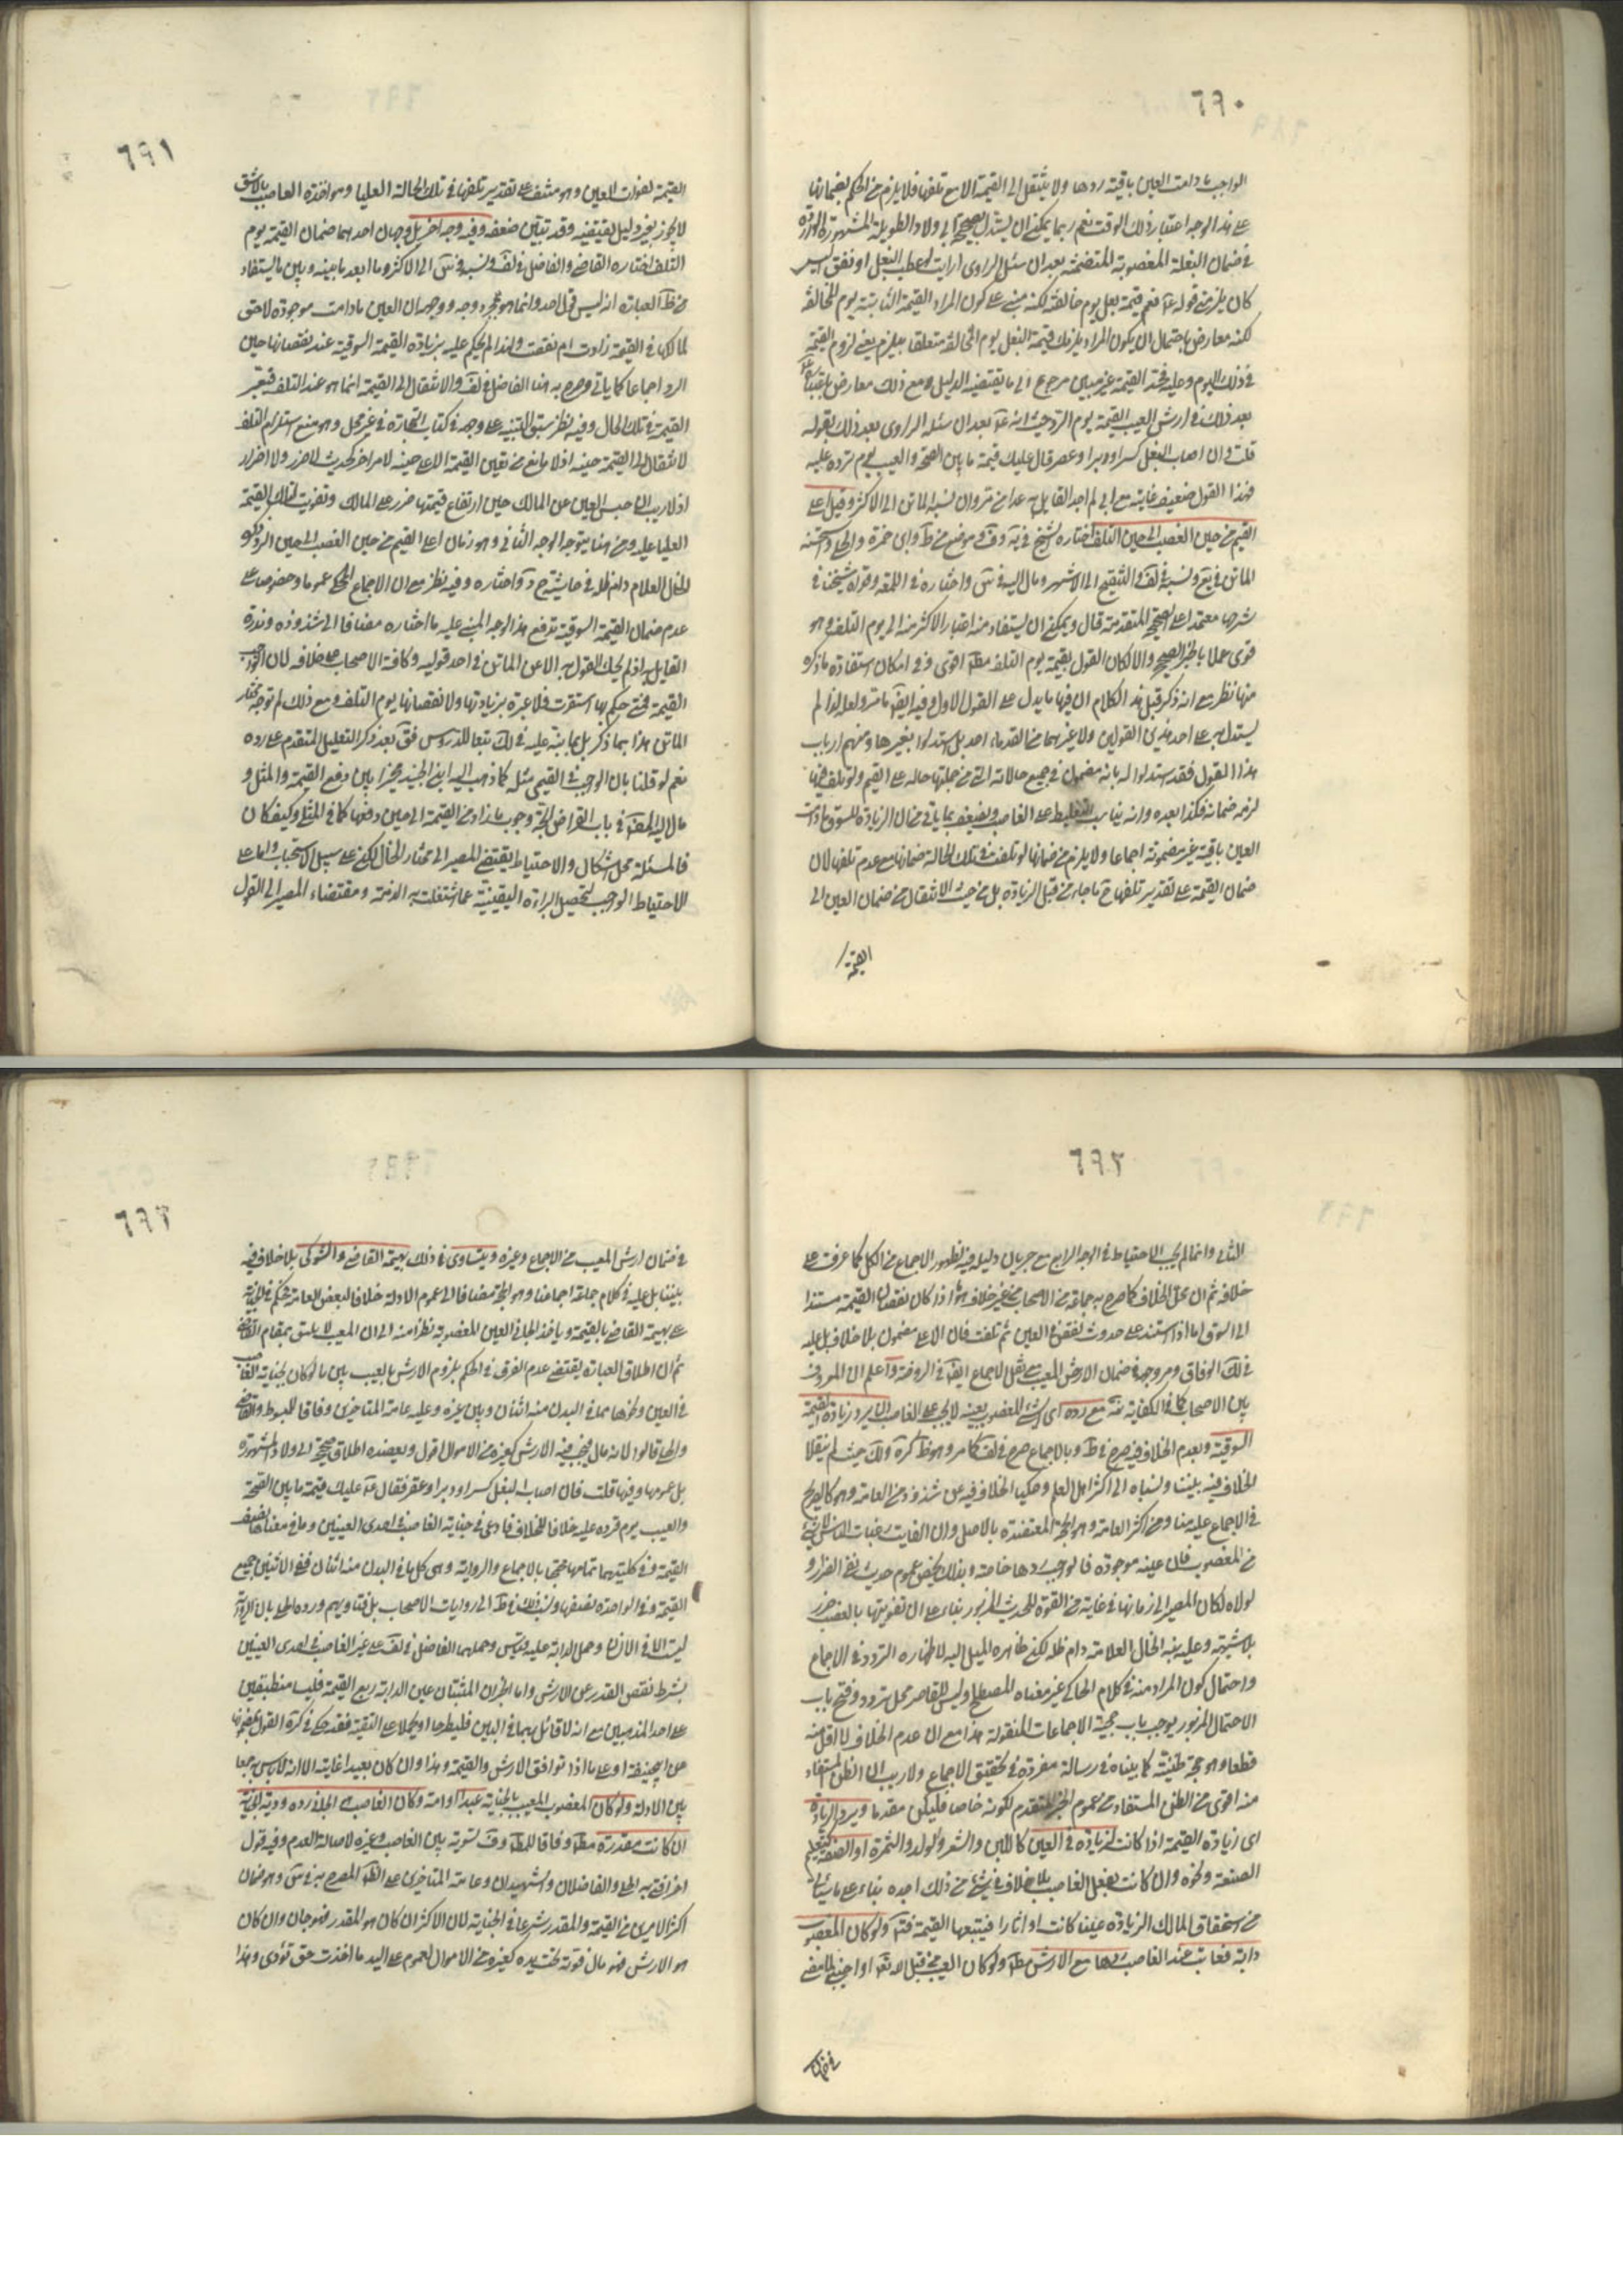 ٦٩٠
الواجب ما دامت العين باقية ردها ولا ينتقل الى القيمة الا مع تلفها فلا يلزم من الحكم بضمانها
على هذا الوجه اعتبار ذلك الوقت نعم ربما يمكن ان يستدل بصحيحة ابي ولاد الطويلة المشهورة الواردة
في ضمان البغلة المغصوبة المتضمنة بعد ان سئل الراوي ارايت لو عطب البغل او نفق اليس
كان يلزمني قوله عة نعم قيمة بغل يوم خالفته لكنه مبني على كون المراد القيمة الثابتة يوم المخالفة
لكنه معارض باحتمال ان يكون المراد يلزمك قيمة البغل يوم المخالفة متعلقا بيلزم يعني لزوم القيمة
في ذلك اليوم وعليه فحد القيمة غير مبين مرجوع الى ما يقتضيه الدليل ومع ذلك معارض باعتباره
بعد ذلك في ارش العيب القيمة يوم الرد حيث انه عة بعد ان سئله الراوي بعد ذلك بقوله
قلت وان اصاب البغل كسر او دبر او عصر قال عليك قيمة ما بين الصحة والعيب يوم ترده عليه
فهذا القول ضعيف غايته مع اني لم اجد القايل به عدا من مر وان نسبه الماتن الى الاكثر وقيل اعلى
القيم من حين الغصب الى حين التلف اختاره الشيخ في ية وف وموضع من ط وابن حمزة والحلي واستحسنه
الماتن في يع ونسبه في لف والتنقيح الى الاشهر ومال اليه في س واختاره في اللمعة وقواه شيخنا في
شرحها معتمدا على الصحيح المتقدمة قال ويمكن ان يستفاد منه اعتبار الاكثر منه الى يوم التلف وهو
قوى عملا بالخبر الصحيح والا لكان القول بقيمة يوم التلف مط اقوى وفي امكان استفادة ما ذكره
منها نظر مع انه ذكر قبل هذا الكلام ان فيها ما يدل على القول الاول وفيه ايض ما مر ولعله لذا لم
يستدل بها على احد هذين القولين ولا غيرهما من القدماء احد بل استدلوا بغيرها ومنهم ارباب
هذا القول فقد استدلوا له بانه مضمون في جميع حالاته التي من جملتها حالة على القيم ولو تلف فيها
لزمه ضمانه فكذا بعده وانه يناسب التغليظ على الغاصب ويضعف بما ياتي من ان الزيادة للسوق ما دامت
العين باقية غير مضمونة اجماعا ولا يلزم من ضمانها لو تلفت في تلك الحالة ضمانها مع عدم تلفها لان
ضمان القيمة على تقدير تلفها ح ما جاء من قبل الزيادة بل من حيث الانتقال من ضمان العين الى
القيمة
٦٩١
القيمة لفوات العين وهو منتف على تقدير تلفها في تلك الحالة العليا ومواخذة الغاصب بالاشق
لا يجوز بغير دليل يقتضيه وقد تبين ضعفه وفيه وجه اخر بل وجهان احدهما ضمان القيمة يوم
التلف اختاره القاضي والفاضل في لف ونسبه في س الى الاكثر وما ابعد ما بينه وبين ما يستفاد
من ظ العبارة انه ليس قول احد وانما هو مجرد وجه ووجهه ان العين ما دامت موجودة لا حق
لمالكها في القيمة زادت ام نقصت ولذا لم يحكم عليه بزيادة القيمة السوقية عند نقصانها حين
الرد اجماعا كما ياتي وصرح به هنا الفاضل في لف والانتقال الى القيمة انما هو عند التلف فتعتبر
القيمة في تلك الحال وفيه نظر سبق التنبيه على وجهه في كتاب التجارة في غير محل وهو منع استلزام التلف
لانتقال الى القيمة حينه اذ لا مانع من تعين القيمة الاعلى حينه لامر اخر كحديث لا ضرر ولا اضرار
اذ لا ريب ان حبس العين عن المالك حين ارتفاع قيمتها ضرر على المالك وتفويت لتلك القيمة
العليا عليه ومن هنا يتوجه الوجه الثاني وهو زمان اعلى القيم من حين الغصب الى حين الرد وهو
للخال العلام دام ظله في حاشيته ح واختاره وفيه نظر مع ان الاجماع المحكي عموما وخصوصا على
عدم ضمان القيمة السوقية تدفع هذا الوجه المبني عليه ما اختاره مضافا الى شذوذه وندرة
القايل به اذ لم يحك القول به الا عن الماتن في احد قوليه وكافة الاصحاب على خلافه لان الواجب
القيمة فمتى حكم بها استقرت فلا عبرة بزيادتها ولا نقصانها يوم التلف ومع ذلك لم توجه مختار
الماتن هذا بما ذكر بل بما نبه عليه في لك تبعا للدروس فق بعد ذكر التعليل المتقدم على رده
نعم لو قلنا بان الواجب في القيمي مثله كما ذهب اليه ابن الجنيد مخيرا بين دفع القيمة والمثل و
مال اليه المص في باب القراض اتجه وجوب ما زاد من القيمة الى حين دفعها كما في المثلي وكيف كان
فالمسئلة محل اشكال والاحتياط يقتضي المصير الى مختار الخال لكن على سبيل الاستحباب واما على
الاحتياط الواجب لتحصيل البراءة اليقينية عما اشتغلت به الذمة ومقتضاه المصير الى القول
٦٩٢
الثاني وانما لم يجب الاحتياط في الوجه الرابع مع جريان دليله فيه لظهور الاجماع من الكل كما عرفت على
خلافه ثم ان محل الخلاف كما صرح به جماعة من الاصحاب من غير خلاف هو اذا كان نقصان القيمة مستندا
الى السوق اما اذا استند على حدوث نقص في العين ثم تلفت فان الاعلى مضمون بلا خلاف بل عليه
في لك الوفاق ومر وجهه في ضمان الارش المعيب مع نقل الاجماع ايض في الروضة واعلم ان المعروف
بين الاصحاب كما في الكفاية انه مع رده اي الشيء المغصوب بعينه لا يجب على الغاصب ان يرد زيادة القيمة
السوقية وبعدم الخلاف فيه صرح في ط وبالاجماع صرح في لف كما مر وهو ظ كرة ولك حيث لم ينقلا
الخلاف فيه بيننا ونسباه الى اكثر اهل العلم وحكيا الخلاف فيه عن شذوذ من العامة وهو كالصريح
في الاجماع عليه منا ومن اكثر العامة وهو الحجة المعتضدة بالاصل وان الفايت رغبات الناس لا شيء
من المغصوب فان عينه موجودة فالواجب ردها خاصة وبذلك يخص عموم حديث نفي الضرار و
لولاه لكان المصير الى زمانها في غاية من القوة للحديث المزبور بناء على ان تفويتها بالغصب ضرر
بلا شبهة وعليه نبه الخال العلامة دام ظله لكن ظاهره الميل اليه لاظهاره التردد في الاجماع
واحتمال كون المراد منه في كلام الحاكي غير معناه المصطلح وليس للقاصر محل تردد وفتح باب
الاحتمال المزبور يوجب باب حجية الاجماعات المنقولة هذا مع ان عدم الخلاف لا اقل منه
قطعا وهو حجة ظنية كما بيناه في رسالة مفردة في تحقيق الاجماع ولا ريب ان الظن المستفاد
منه اقوى من الظن المستفاد من عموم الخبر المتقدم لكونه خاصا فليكن مقدما ويرد الزيادة
اي زيادة القيمة اذا كانت لزيادة في العين كاللبن والشعر والولد والثمرة او الصفة كتعليم
الصنعة ونحوه وان كانت بفعل الغاصب بلا خلاف في شيء من ذلك اجده بناء على ما سيأتي
من استحقاق المالك الزيادة عينا كانت او اثارا فيتبعها القيمة فت ولو كان المغصوب
دابة فعابت عند الغاصب ردها مع الارش مط ولو كان العيب من قبل الله تعالى او اجنبي لما مضى
في ضمان
٦٩٣
في ضمان ارش المعيب من الاجماع وغيره ويتساوى في ذلك بهيمة القاضي والشوكي بلا خلاف فيه
بيننا بل عليه في كلام جماعة اجماعنا وهو الحجة مضافا الى عموم الادلة خلافا لبعض العامة فحكم في الجناية
على بهيمة القاضي بالقيمة وياخذ الجاني العين المغصوبة نظرا منه الى ان المعيب لا يليق بمقام القاضي
ثم ان اطلاق العبارة يقتضي عدم الفرق في الحكم بلزوم الارش بالعيب بين ما لو كان بجناية الغاصب
في العين ونحوها مما في البدن منه اثنان وبين غيره وعليه عامة المتاخرين وفاقا للمبسوط والقاضي
والحلي قالوا لانه مال فيجب فيه الارش كغيره من الاموال اقول ويعضده اطلاق صحيحة ابي ولاد المشهورة
بل عمومها وفيها قلت فان اصاب البغل كسر او دبر او عقر فقال عة عليك قيمة ما بين الصحة
والعيب يوم ترده عليه خلافا للخلاف فادعى في جناية الغاصب في احدى العينين وما في معناها نصف
القيمة وفي كليتهما تمامها محتجا بالاجماع والرواية وهي كل ما في البدن منه اثنان ففي الاثنين جميع
القيمة وفي الواحدة نصفها ونسب ذلك في ط الى روايات الاصحاب بل فتاويهم ورده الحلي بان الرواية
ليست الا في الانسان وحمل الدابة عليه قياس وحملهما الفاضل في لف على غير الغاصب في احدى العينين
بشرط نقص القدر عن الارش واما الخبران المثبتان عين الدابة ربع القيمة فليسا منطبقين
على احد المذهبين مع انه لا قائل بهما في البين فليطرحا او يحملا على التقية فقد حكى في كرة القول بمضمونها
عن ابي حنيفة او على ما اذا توافق الارش والقيمة وهذا وان كان بعيدا غايته الا انه لا باس به جمعا
بين الادلة ولو كان المغصوب المعيب بالجناية عبدا او امة وكان الغاصب هو الجاني رده ودية الجناية
ان كانت مقدرة مط وفاقا للمبسوط وف لتسوية بين الغاصب وغيره لاصالة العدم وفيه قول
اخر افتى به الحلي والفاضلان والشهيدان وعامة المتاخرين على الظ المصرح به في س وهو ضمان
اكثر الامرين من القيمة والمقدر شرعا في الجناية لان الاكثر ان كان هو المقدر فهو جان وان كان
هو الارش فهو مال فوته تحت يده كغيره من الاموال لعموم على اليد ما اخذت حتى تؤدى وهذا